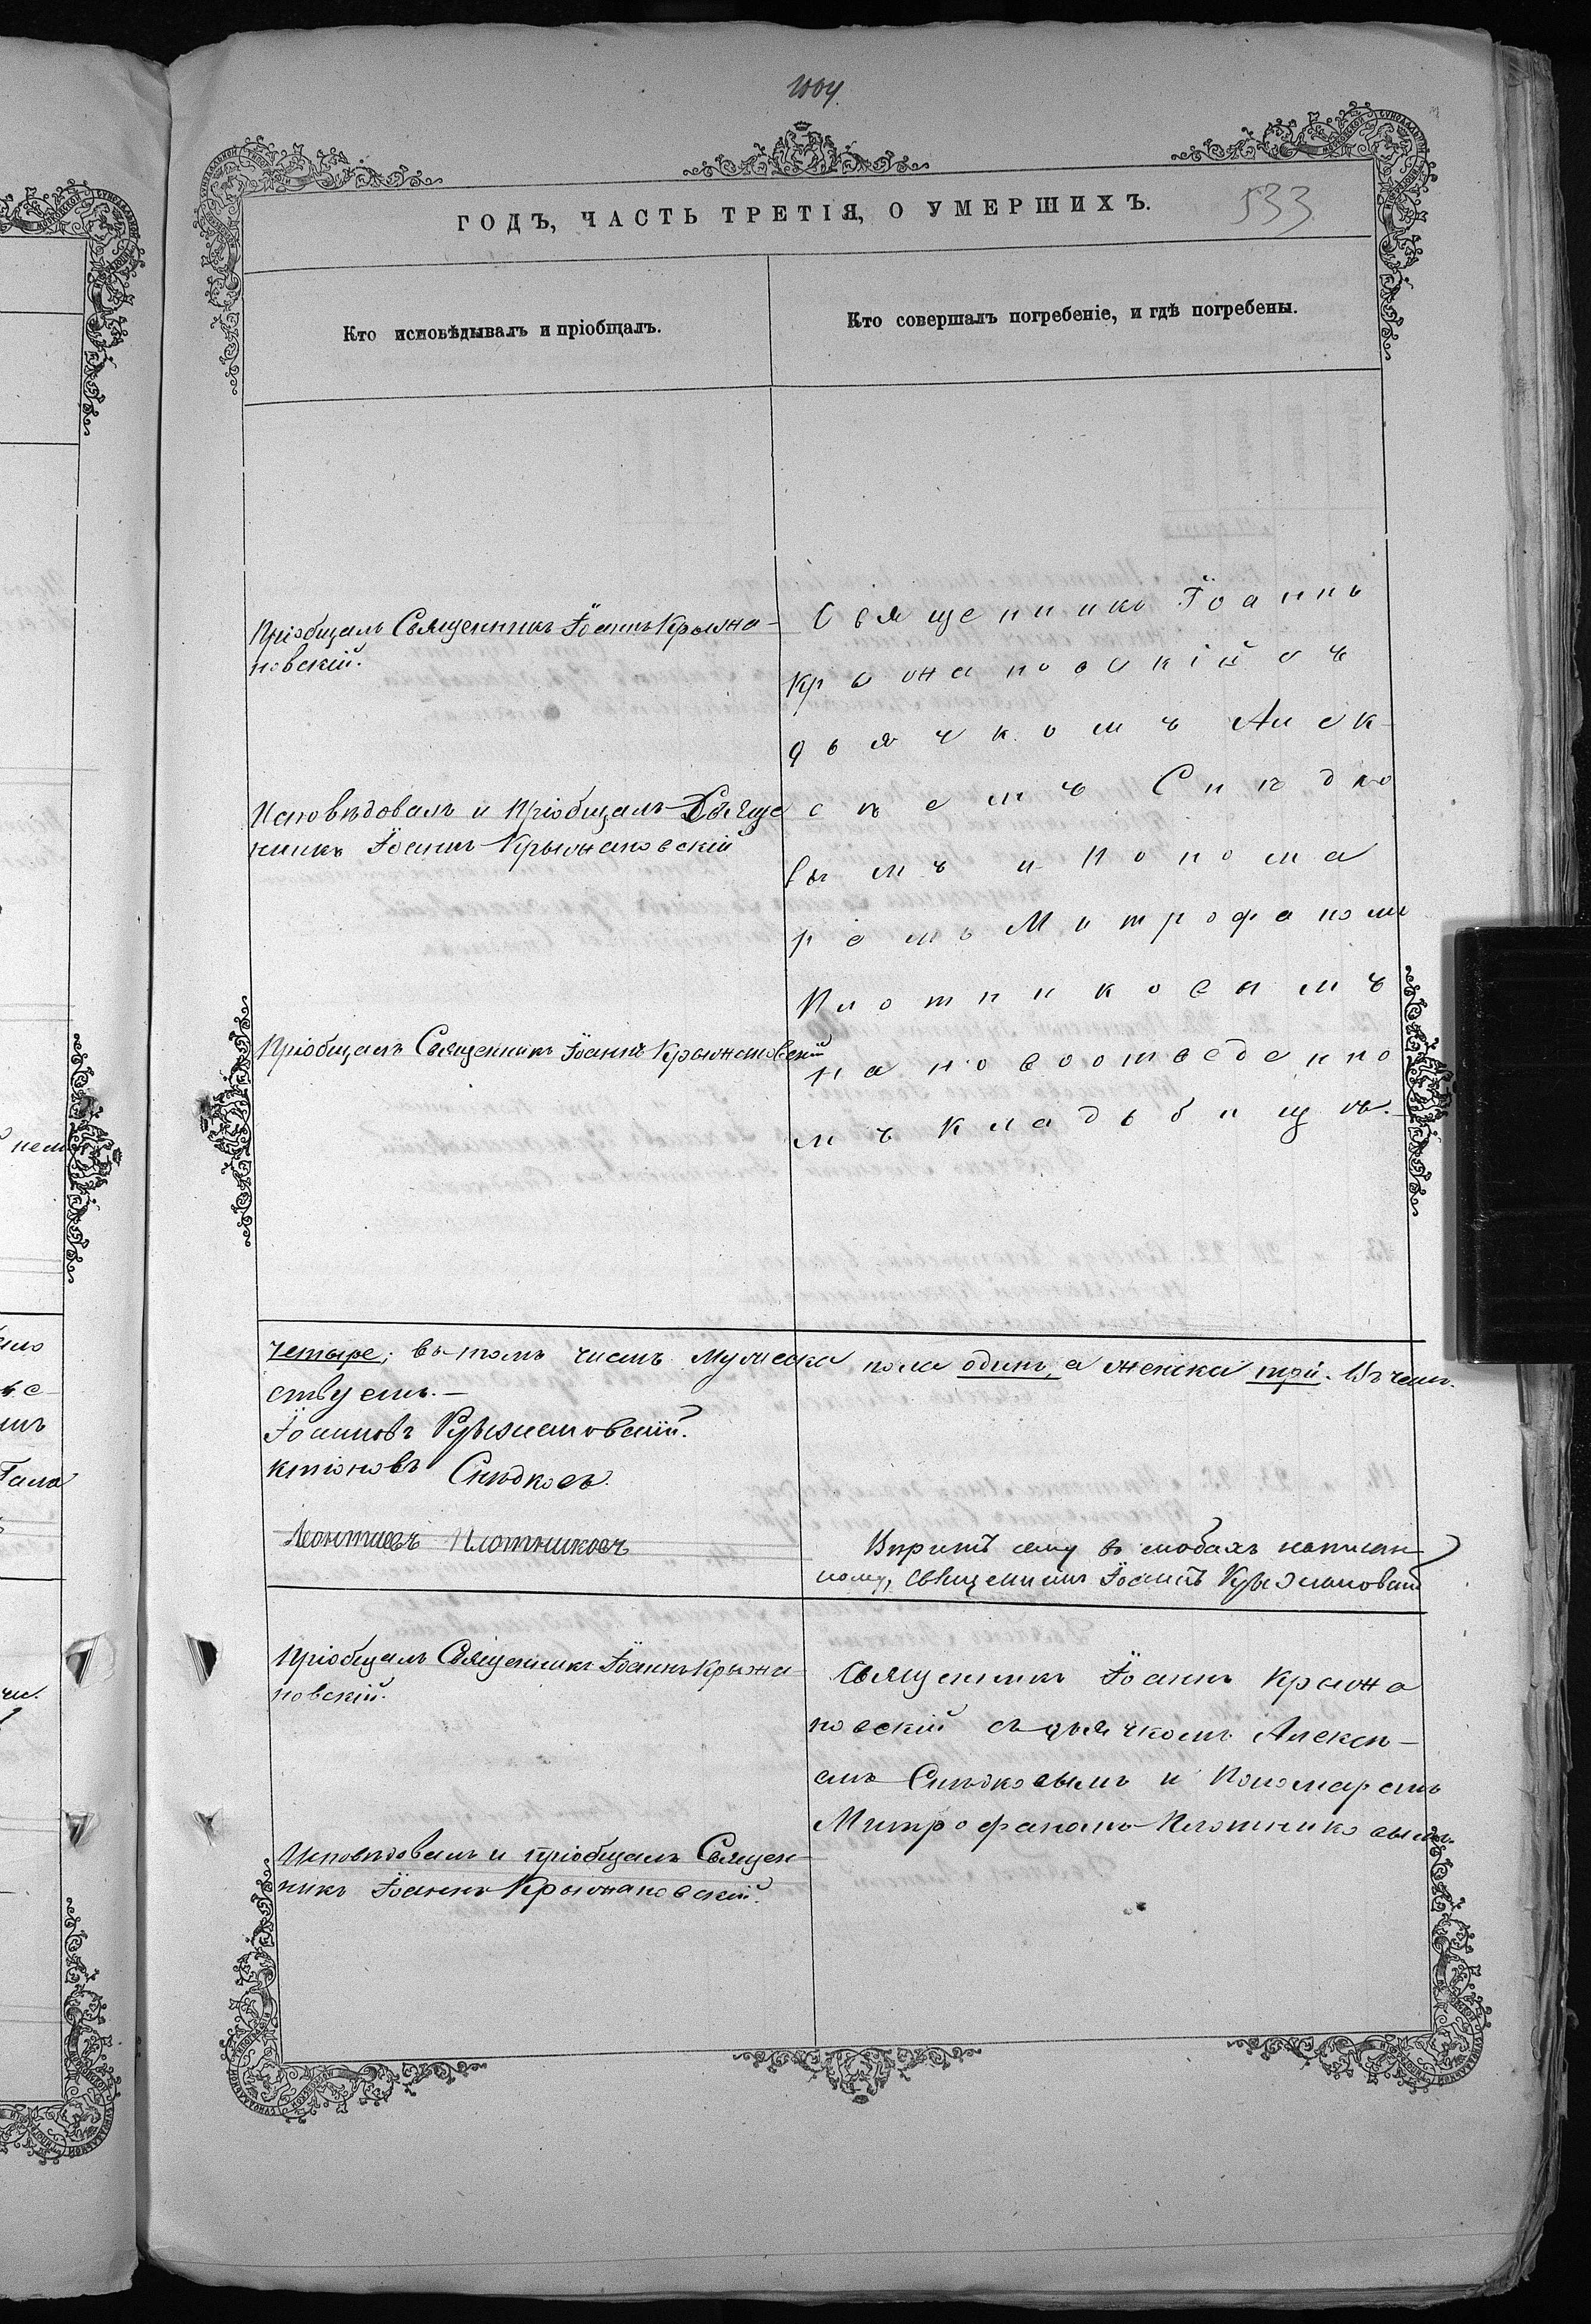 533
ГОДЪ, ЧАСТЬ ТРЕТІЯ, О УМЕРШИХЪ.
Кто исповѣдывалъ и пріобщалъ.
Кто совершалъ погребеніе, и гдѣ погребены.
Пріобщалъ Священникъ Іоаннъ Крыжа-
новскій.
Исповѣдовалъ и Пріобщалъ Свяще
никъ Іоаннъ Крыжановскій
Пріобщалъ Священникъ Іоаннъ Крыжановскій
Священникъ Іоаннъ
Крыжановскій съ
дьячкомъ Алек-
сѣемъ Снѣдко
вымъ и Понома
ремъ Митрофаномъ
Плотниковымъ
на новоотведенно
мъ кладьбищѣ.
четыре; въ томъ числѣ мужеска пола одинъ, а женска три. Въ чемъ
ствуемъ.-
Іоанновъ Крыжановскій.
ктіоновъ Снѣдковъ.
Леонтіевъ Плотниковъ
сему въ написан-
ному, Священникъ Іоаннъ Крыжановскій
Пріобщалъ Священникъ Іоаннъ Крыжа-
новскій.
Исповѣдовалъ и пріобщалъ Священ-
никъ Іоаннъ Крыжановскій.
Священникъ Іоаннъ Крыжа
новскій съ дьячкомъ Алексѣ-
емъ Снѣдковымъ и Пономаремъ
Митрофаномъ Плотниковымъ.